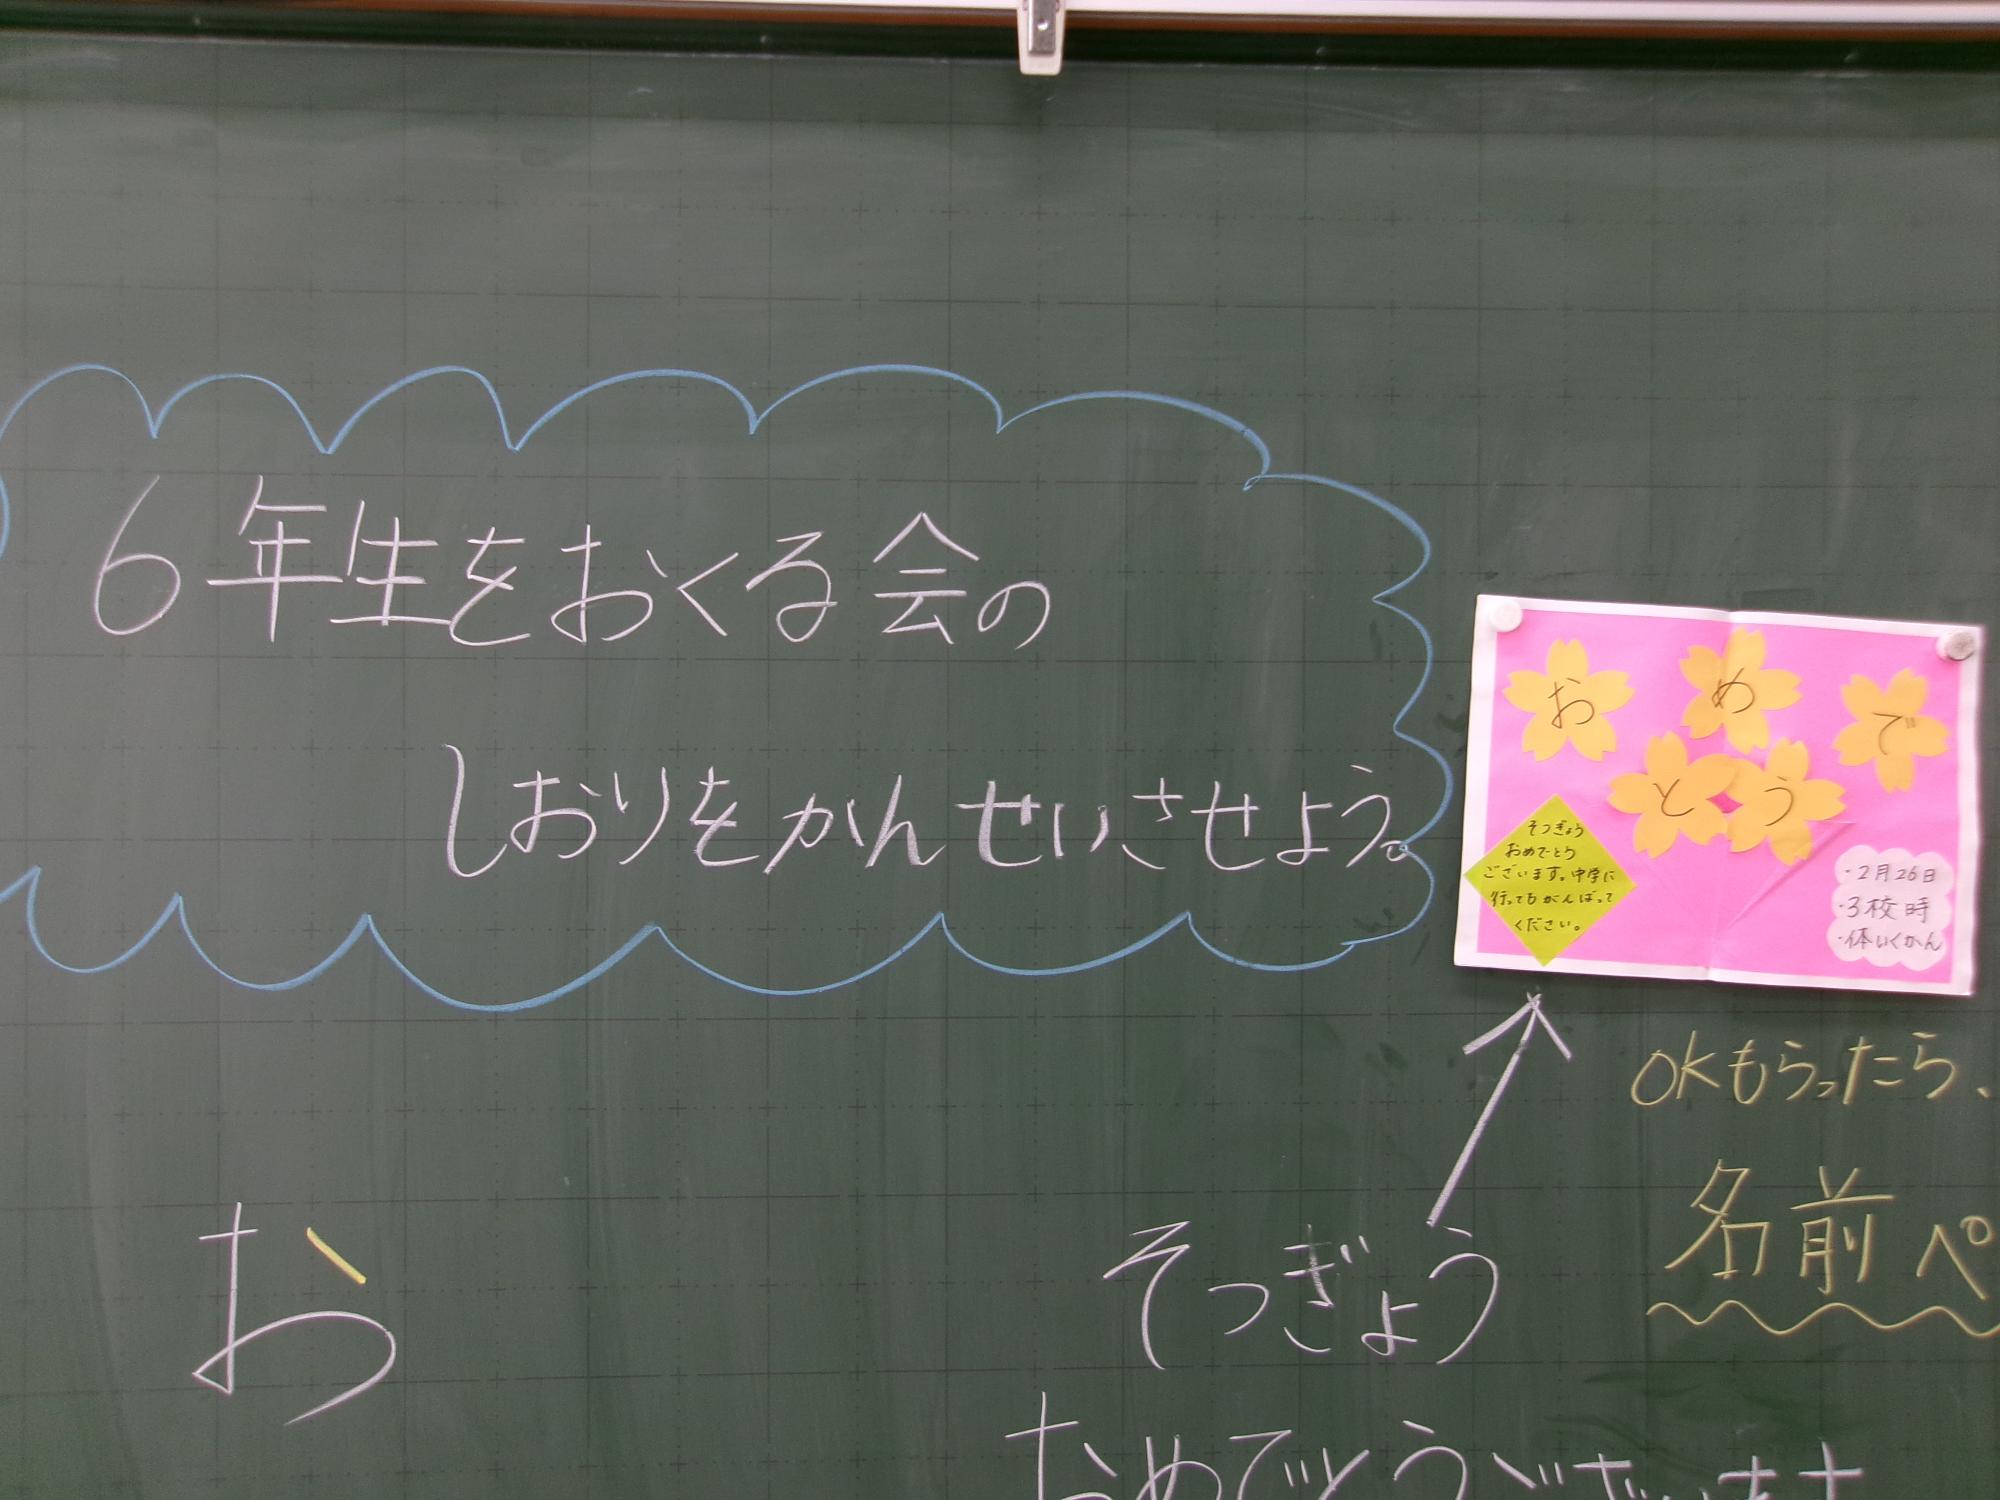 6年生をおくる会の
しおりをかんせいさせよう。
お
め
で
と
う
そつぎょう
おめでとう
ございます。中学に
行ってもがんばって
ください。
・2月26日
・3校時
・体いくかん
OKもらったら、
名前ペ
お
そつぎょう
おめでとうございます